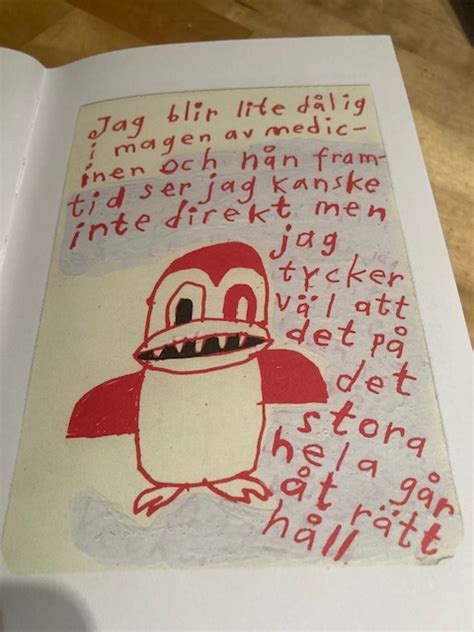 Jag blir lite dålig
i magen av medic-
inen och nån fram-
tid ser jag kanske
inte direkt men
jag
tycker
väl att
det på
det
stora
hela går
åt rätt
håll